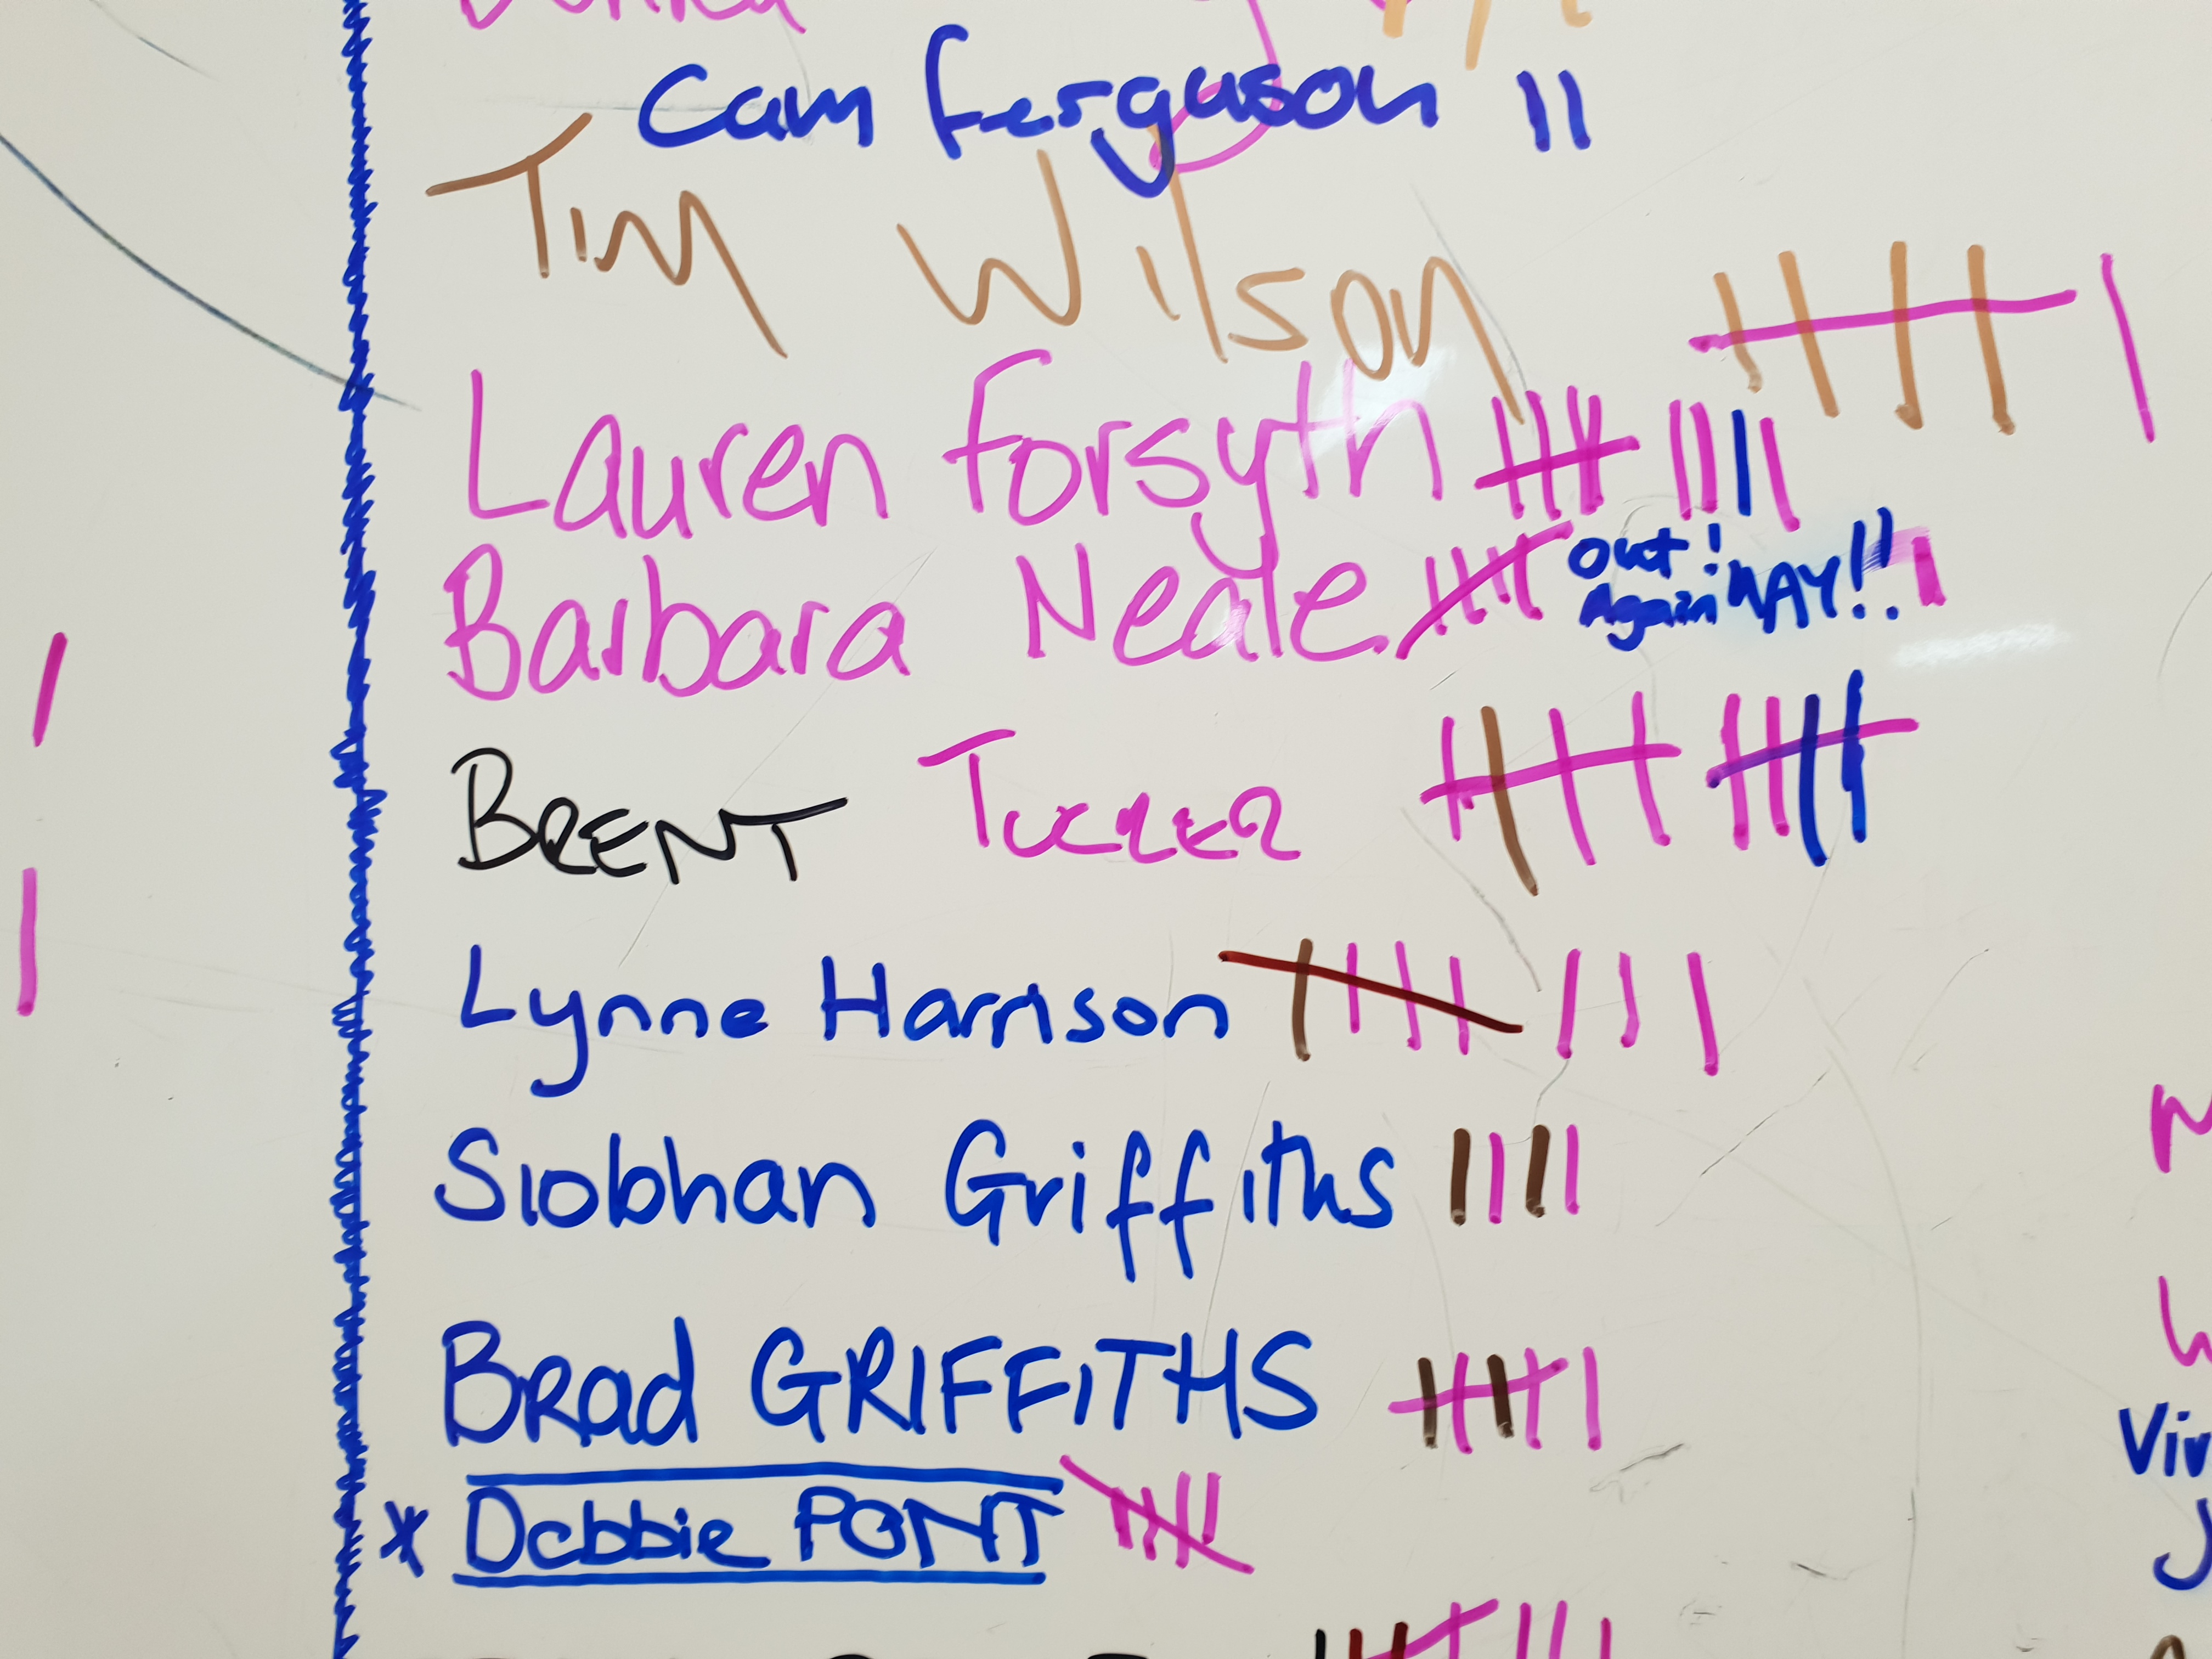 Cam Ferguson
Tim Wilson
Lauren Forsyth
Barbara Neale Out! Again WAY!!
BRENT TUCKER
Lynne Harrison
Siobhan Griffiths
Brad GRIFFITHS
* Debbie PONT
Vin